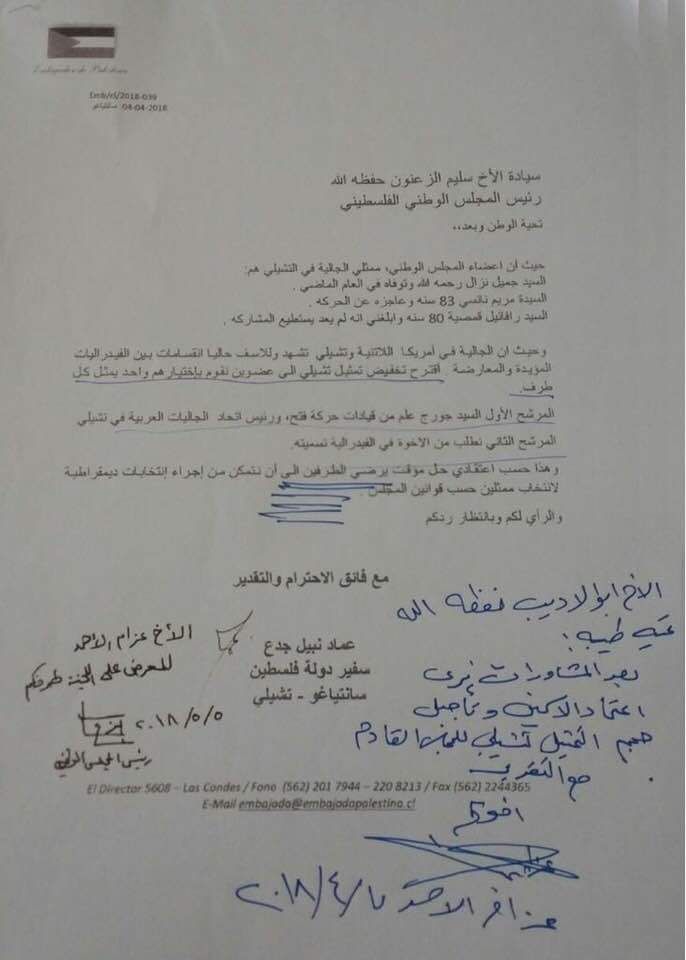 Embajada de Palestina
Emb/cl/2018-039
سانتياغو 04-04-2018
سيادة الأخ سليم الزعنون حفظه الله
رئيس المجلس الوطني الفلسطيني
تحية الوطن وبعد،،
حيث أن اعضاء المجلس الوطني، ممثلي الجالية في التشيلي هم:
السيد جميل نزال رحمه الله وتوفاه في العام الماضي .
السيدة مريم نانسي 83 سنه وعاجزه عن الحركه .
السيد رافائيل قمصية 80 سنه وابلغني انه لم يعد يستطيع المشاركه .
وحيث ان الجالية في أمريكا اللاتنية وتشيلي تشهد وللاسف حاليا انقسامات بين الفيدراليات
المؤيدة والمعارضة أقترح تخفيض تمثيل تشيلي الى عضوين نقوم بإختيارهم واحد يمثل كل
طرف.
المرشح الأول السيد جورج علم من قيادات حركة فتح، ورئيس اتحاد الجاليات العربية في تشيلي
المرشح الثاني نطلب من الاخوة في الفيدرالية تسميته.
وهذا حسب اعتقادي حل مؤقت يرضي الطرفين الى أن نتمكن من إجراء إنتخابات ديمقراطية
لانتخاب ممثلين حسب قوانين المجلس
والرأي لكم وبانتظار ردكم
مع فائق الاحترام والتقدير
عماد نبيل جدع
سفير دولة فلسطين
سانتياغو - تشيلي
الأخ عزام الأحمد
للعرض على اللجنة
٢٠١٨/٥/٥
رئيس المجلس الوطني
الاخ ابو الاديب حفظه الله
تحية طيبة:
بعد المشاورات نرى
اعتماد الاسمين وتأجيل
حجم التمثيل لتشيلي للمجلس القادم
مع التقدير
اخوكم
عزام الاحمد ٢٠١٨/٤/
El Director 5608 – Las Condes / Fono (562) 201 7944 – 220 8213 / Fax (562) 2244365
E-Mail embajada@embajadapalestina.cl